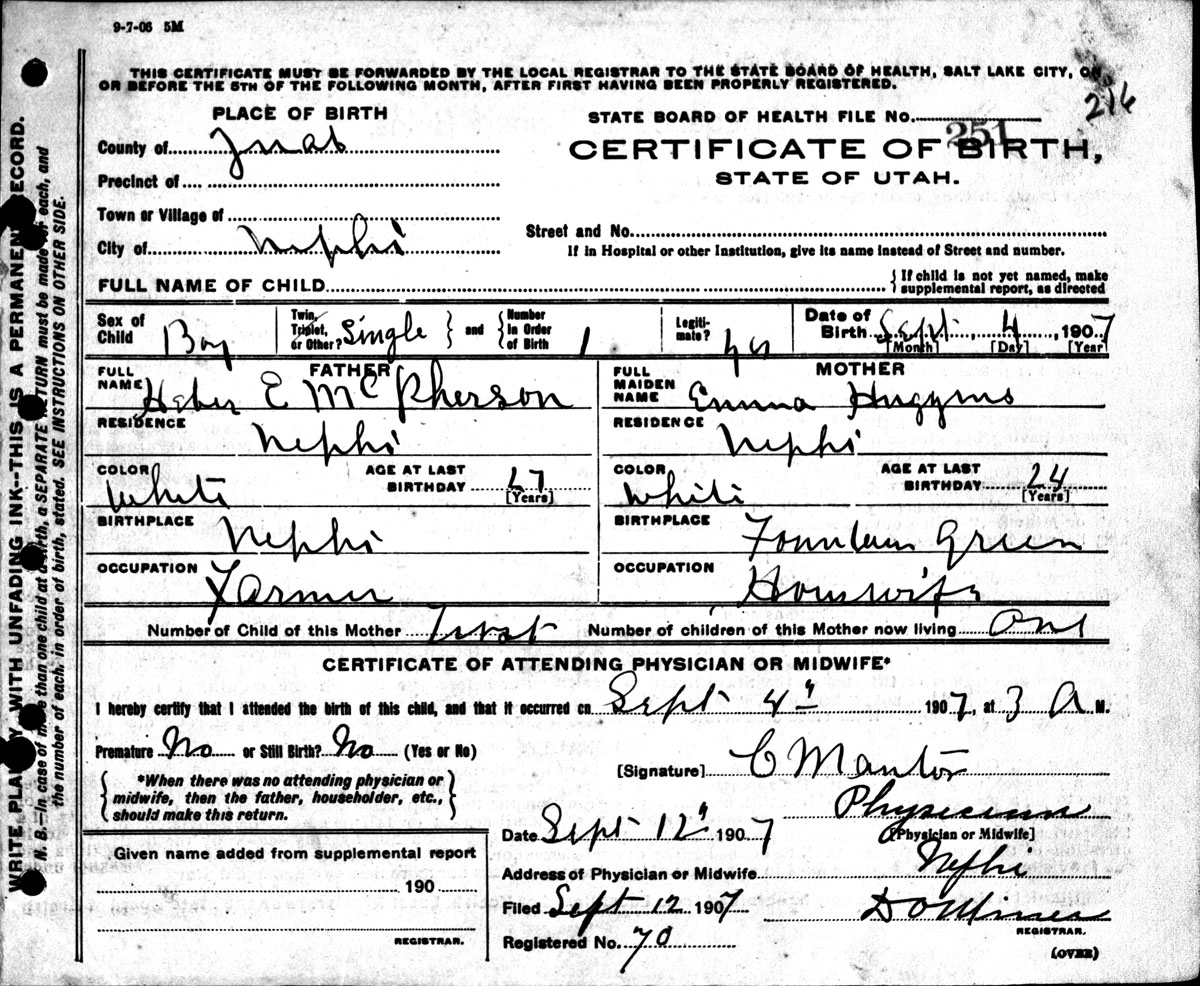 9-7-06 5M
THIS CERTIFICATE MUST BE FORWARDED BY THE LOCAL REGISTRAR TO THE STATE BOARD OF HEALTH, SALT LAKE CITY, ON
OR BEFORE THE 5TH OF THE FOLLOWING MONTH, AFTER FIRST HAVING BEEN PROPERLY REGISTERED.
216
PLACE OF BIRTH
STATE BOARD OF HEALTH FILE NO. 251
County of Juab
CERTIFICATE OF BIRTH,
STATE OF UTAH.
Precinct of
Town or Village of
City of Nephi
Street and No.
If in Hospital or other Institution, give its name instead of Street and number.
FULL NAME OF CHILD
{ If child is not yet named, make
supplemental report, as directed
Sex of Child Boy
Twin, Triplet, or Other? Single } and { Number in Order of Birth 1
Legitimate? yes
Date of Birth Sept. 4, 1907
[Month] [Day] [Year]
FATHER
FULL NAME Heber E McPherson
RESIDENCE Nephi
COLOR White
AGE AT LAST BIRTHDAY 27
[Years]
BIRTHPLACE Nephi
OCCUPATION Farmer
MOTHER
FULL MAIDEN NAME Emma Huggins
RESIDENCE Nephi
COLOR White
AGE AT LAST BIRTHDAY 24
[Years]
BIRTHPLACE Fountain Green
OCCUPATION Housewife
Number of Child of this Mother first Number of children of this Mother now living One
CERTIFICATE OF ATTENDING PHYSICIAN OR MIDWIFE*
I hereby certify that I attended the birth of this child, and that it occurred on Sept 4" 1907, at 3 A M.
Premature No or Still Birth? No (Yes or No)
{ *When there was no attending physician or
midwife, then the father, householder, etc.,
should make this return. }
[Signature] C Mantor
Physician
[Physician or Midwife]
Date Sept 12" 1907
Address of Physician or Midwife Nephi
Filed Sept 12 1907
REGISTRAR.
Registered No. 70
(OVER)
Given name added from supplemental report
190
REGISTRAR.
WRITE PLAINLY WITH UNFADING INK--THIS IS A PERMANENT RECORD.
N. B.--In case of more than one child at a birth, a SEPARATE RETURN must be made for each, and
the number of each, in order of birth, stated. SEE INSTRUCTIONS ON OTHER SIDE.